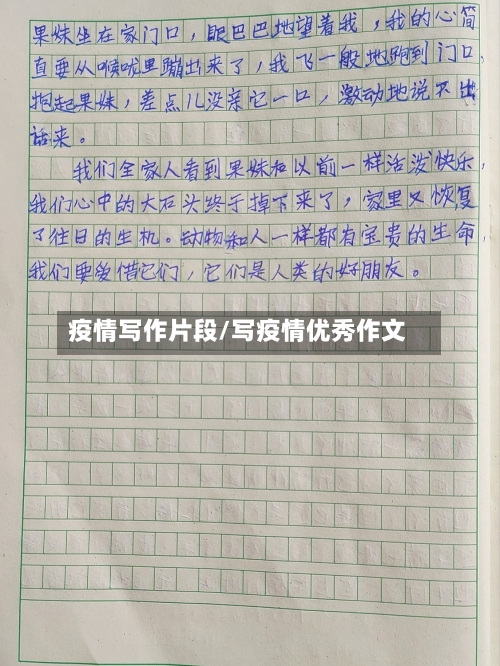 果妹坐在家门口，眼巴巴地望着我，我的心简
直要从喉咙里蹦出来了，我飞一般地跑到门口，
抱起果妹，差点儿没亲它一口，激动地说不出
话来。
我们全家人看到果妹和以前一样活泼快乐，
我们心中的大石头终于掉下来了，家里又恢复
了往日的生机。动物和人一样都有宝贵的生命，
我们要爱惜它们，它们是人类的好朋友。
疫情写作片段/写疫情优秀作文